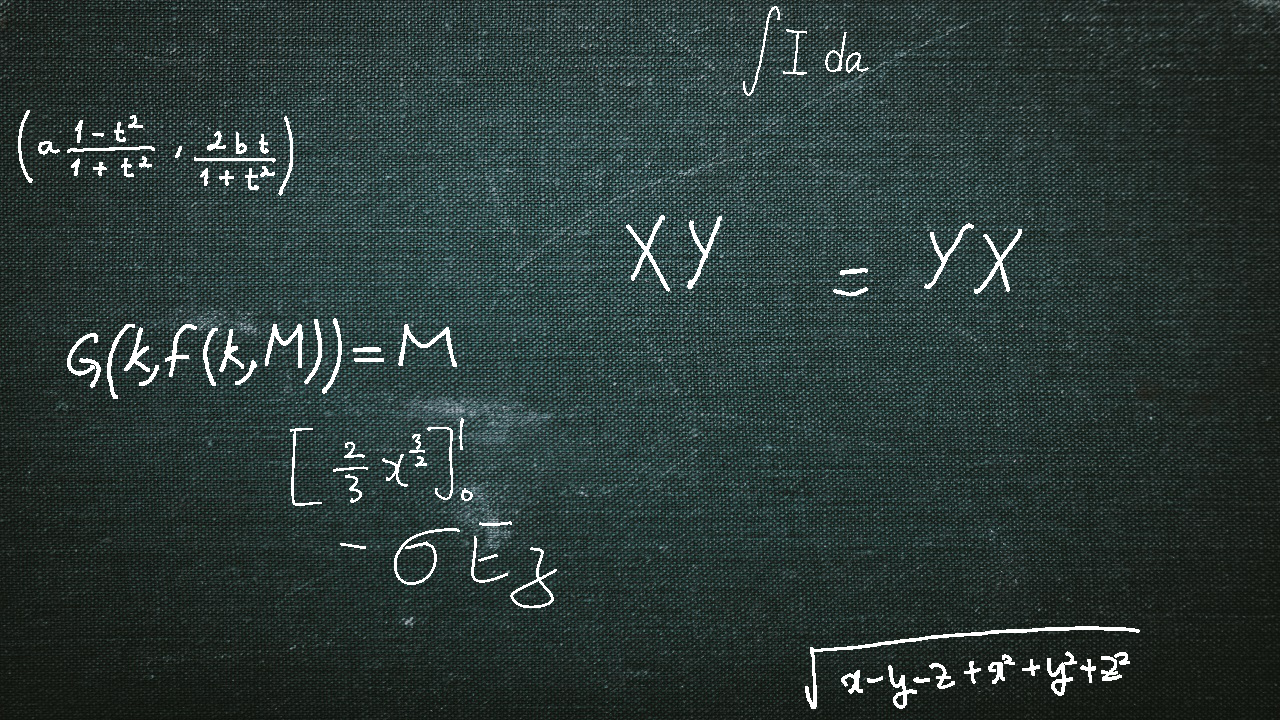 ∫ I da
(a \frac{1-t^2}{1+t^2}, \frac{2bt}{1+t^2})
XY = YX
G(k,f(k,M))=M
[\frac{2}{3} x^{\frac{3}{2}}]_0^1
-σE_z
\sqrt{x-y-z+x^2+y^2+z^2}